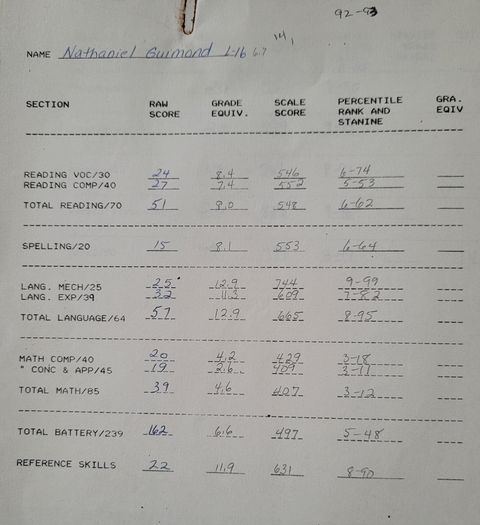 92-93
NAME Nathaniel Guimond L-16 6.7
SECTION RAW SCORE GRADE EQUIV. SCALE SCORE PERCENTILE RANK AND STANINE GRA. EQIV
READING VOC/30 24 8.4 546 6-74
READING COMP/40 27 7.4 552 5-53
TOTAL READING/70 51 8.0 548 6-62
SPELLING/20 15 8.1 553 6-64
LANG. MECH/25 25 12.9 744 9-99
LANG. EXP/39 32 11.3 609 7-82
TOTAL LANGUAGE/64 57 12.9 665 8-95
MATH COMP/40 20 4.2 429 3-18
" CONC & APP/45 19 2.6 409 3-11
TOTAL MATH/85 39 4.6 407 3-12
TOTAL BATTERY/239 162 6.6 497 5-48
REFERENCE SKILLS 22 11.9 631 8-90